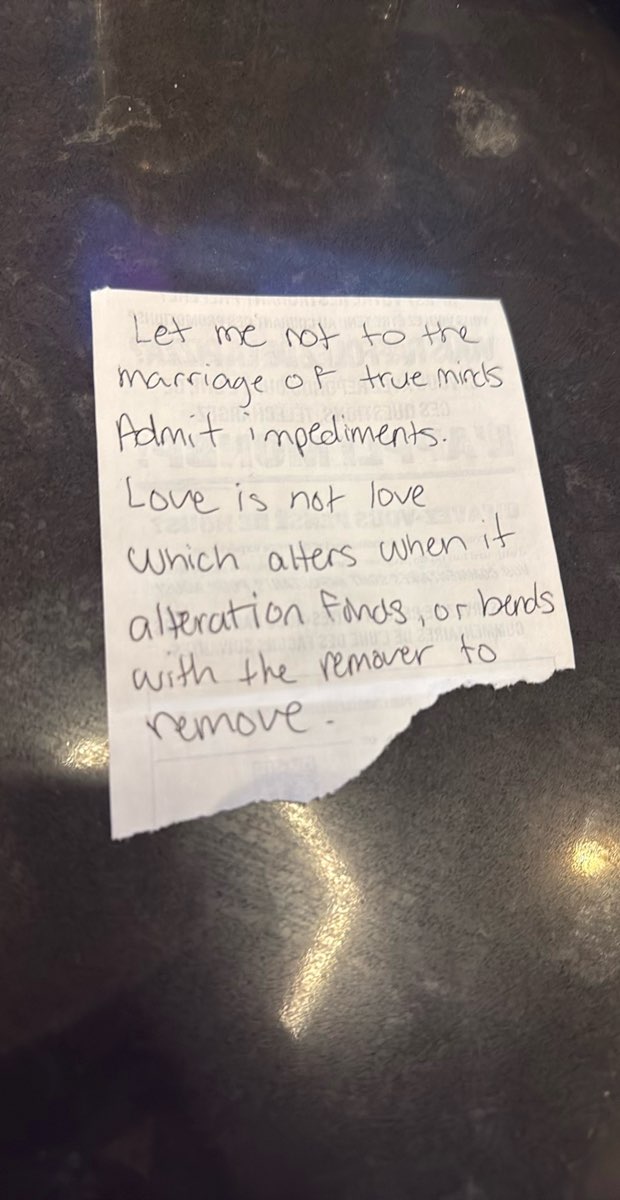 Let me not to the
marriage of true minds
Admit impediments.
Love is not love
which alters when it
alteration finds, or bends
with the remover to
remove.